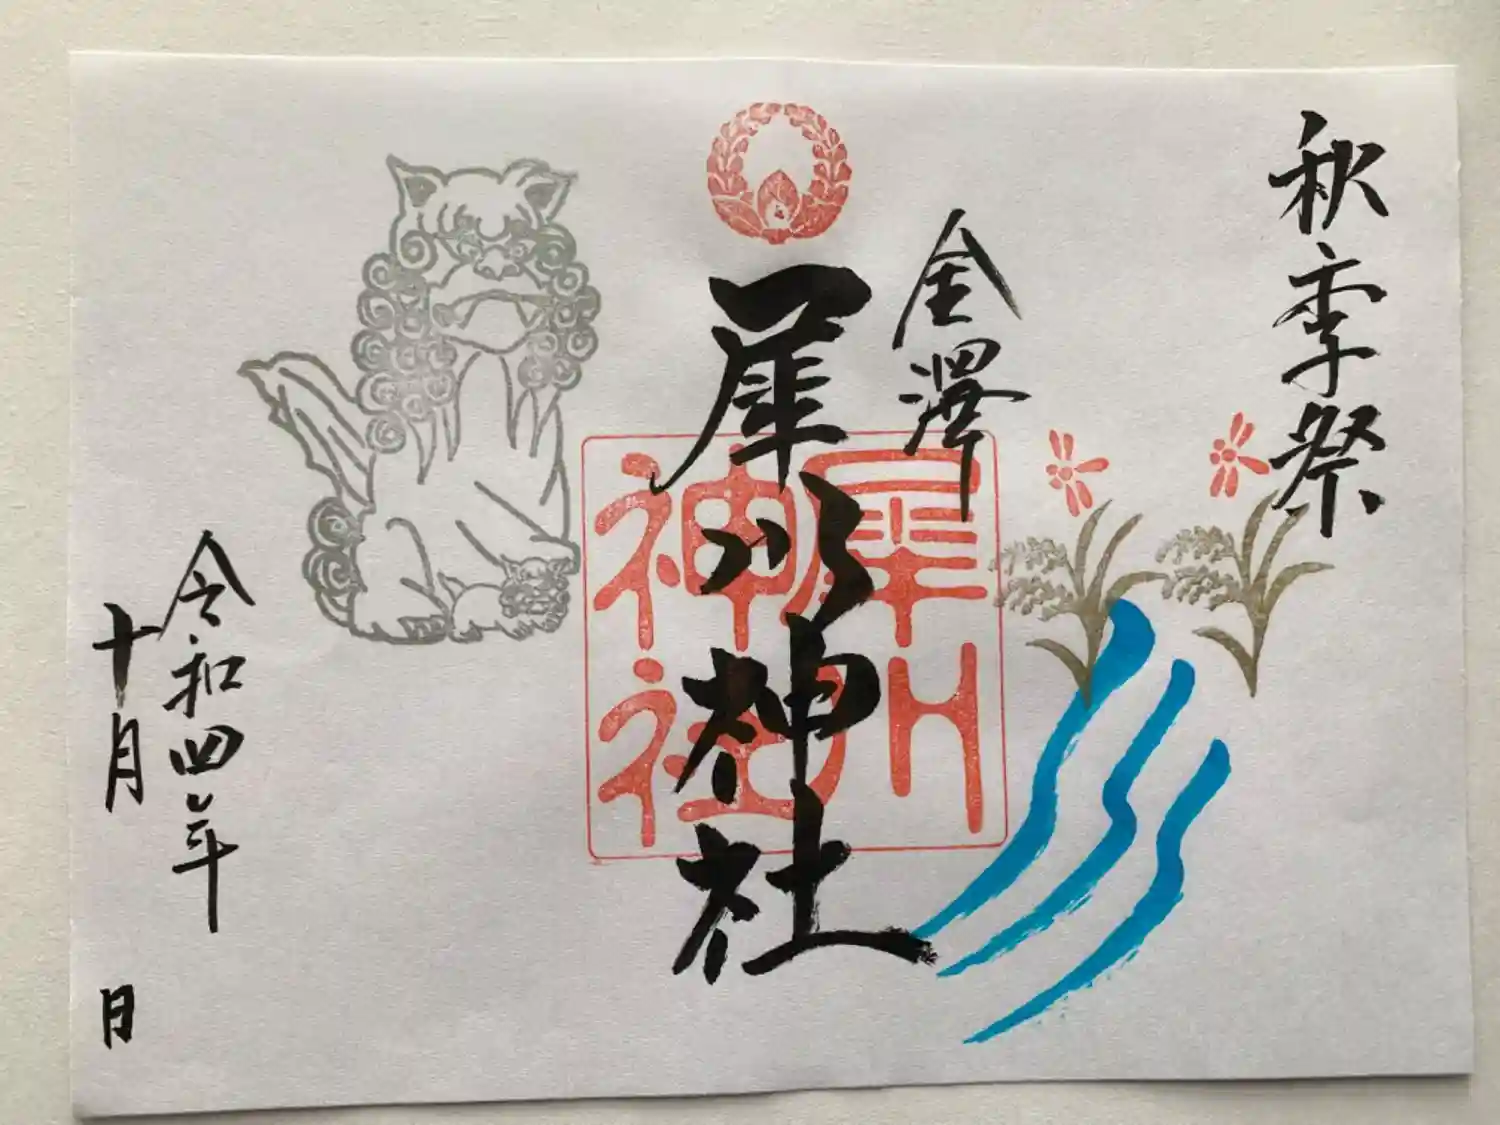 秋季祭
金澤
犀川神社
犀川
神社
令和四年
十月
日